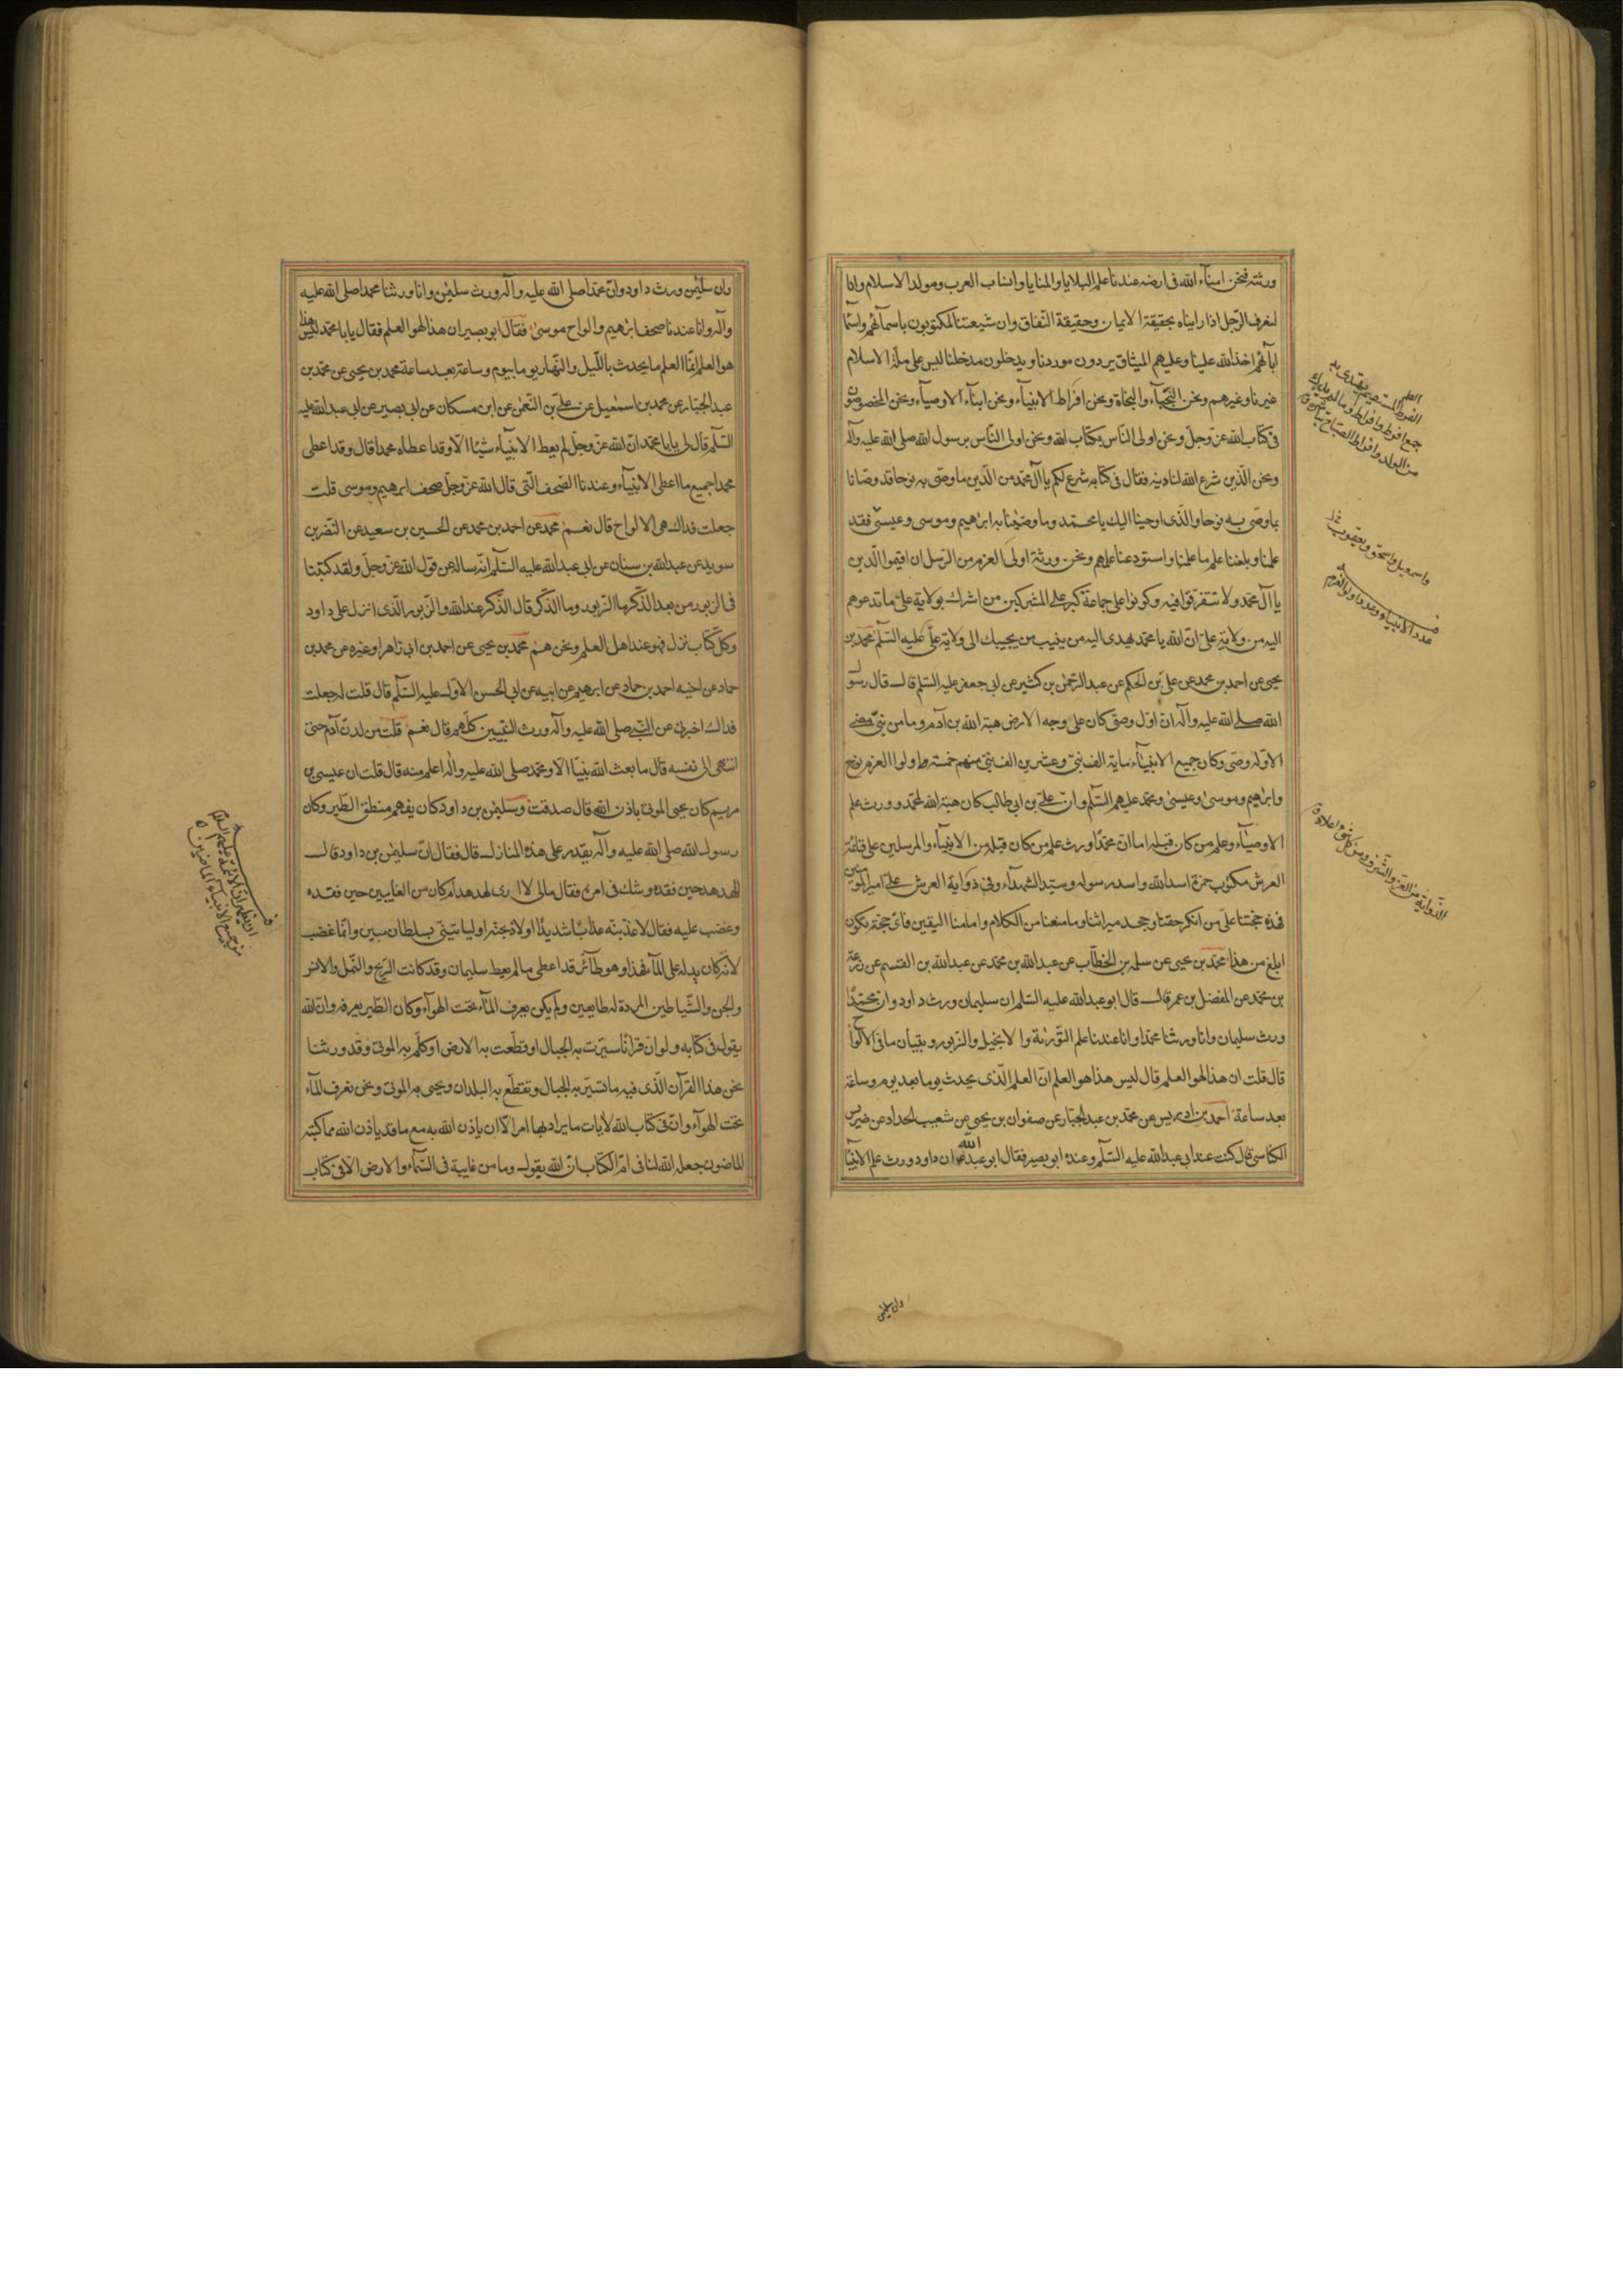 ورثته فنحن امناء الله فى ارضه عندنا علم البلايا والمنايا وانساب العرب ومولد الاسلام وانا
لنعرف الرّجل اذا رايناه بحقيقة الايمان وحقيقة النّفاق وان شيعتنا لمكتوبون باسمآئهم واسمآ
ابآئهم اخذ الله علينا وعليهم الميثاق يردون موردنا ويدخلون مدخلنا ليس على ملّة الاسلام
غيرنا وغيرهم ونحن النّجبآء والنجاة ونحن افراط الانبيآء ونحن ابنآء الاوصيآء ونحن المخصوصون
فى كتاب الله عزّ وجلّ ونحن اولى النّاس بكتاب الله ونحن اولى النّاس برسول الله صلى الله عليه وآله
ونحن الّذين شرع الله لنا دينه فقال فى كتابه شرع لكم يا آل محمد من الّدين ما وصّى به نوحا قد وصّانا
بما وصّى به نوحا والّذى اوحينا اليك يا محمّد وما وصّينا به ابرٰهيم وموسى وعيسىٰ فقد
علّمنا وبلّغنا علم ما علّمنا واستودعنا علمهم ونحن ورثة اولى العزم من الرّسل ان اقيموا الّدين
يا آل محمد ولا تتفرّقوا فيه وكونوا على جماعة كبر على المشركين من اشرك بولاية علىّ ما تدعوهم
اليه من ولاية علىّ انّ الله يا محمّد يهدى اليه من ينيب من يجيبك الى ولاية علىّ عليه السّلم محمد بن
يحيى عن احمد بن محمد عن علىّ بن الحكم عن عبد الرّحمٰن بن كثير عن ابى جعفر عليه السّلم قال قال رسول
الله صلى الله عليه وآله ان اوّل وصىّ كان على وجه الارض هبة الله بن آدم وما من نبىّ مضى
الا وله وصى وكان جميع الانبيآء ماية الف نبىّ وعشرين الف نبىّ منهم خمسة اولوا العزم نوح
وابرٰهيم وموسىٰ وعيسىٰ ومحمّد عليهم السّلم وانّ علىّ بن ابى طالب كان هبة الله لمحمّد وورث علم
الاوصيآء وعلم من كان قبله اما انّ محمّدا ورث علم من كان قبله من الانبيآء والمرسلين على قائمة
العرش مكتوب حمزة اسد الله واسد رسوله وسيّد الشهدآء وفى ذوابة العرش علىّ امير المؤمنين
فهذه حجّتنا على من انكر حقّنا وجحد ميراثنا وما منعنا من الكلام وامامنا اليقين فاىّ حجّة تكون
ابلغ من هذا محمّد بن يحيى عن سلمه بن الخطّاب عن عبد الله بن محمد عن عبد الله بن القسم عن زرعة
بن محمّد عن المفضل بن عمر قال قال ابو عبد الله عليه السّلم ان سليمان ورث داود وانّ محمّدًا
ورث سليمان وانا ورثنا محمّدا وانا عندنا علم التّورٰية والانجيل والزّبور وتبيان ما فى الالواح
قال قلت ان هذا لهو العلم قال ليس هذا هو العلم انّ العلم الّذى يحدث يوما بعد يوم وساعة
بعد ساعة احمد بن ادريس عن محمّد بن عبد الجبّار عن صفوان بن يحيى عن شعيب الحداد عن ضريس
الكناسى قال كنت عند ابى عبد الله عليه السّلم وعنده ابو بصير فقال ابو عبد الله ان داود ورث علم الانبيآ
واسمعيل واسحق ويعقوب
عدد الانبياء وعدد اولو العزم
وان سليمٰن
وان سليمٰن ورث داود وانّ محمّدا صلى الله عليه وآله ورث سليمٰن وانا ورثنا محمدا صلى الله عليه
وآله وانا عندنا صحف ابرٰهيم والواح موسىٰ فقال ابو بصير ان هذا لهو العلم فقال يابا محمّد ليس هذا
هو العلم انّما العلم ما يحدث باللّيل والنّهار يوما بيوم وساعة بعد ساعة محمد بن يحيى عن محمّد بن
عبد الجبّار عن محمد بن اسمٰعيل عن علىّ بن النّعمٰن عن ابن مسكان عن ابى بصير عن ابى عبد الله عليه
السّلم قال قال لى يابا محمّد انّ الله عزّ وجلّ لم يعط الانبيآء شيئا الا وقد اعطاه محمدا قال وقد اعطى
محمدا جميع ما اعطى الانبيآء وعندنا الصّحف الّتى قال الله عزّ وجلّ صحف ابرٰهيم وموسى قلت
جعلت فداك هى الالواح قال نعم محمد عن احمد بن محمد عن الحسين بن سعيد عن النّضر بن
سويد عن عبد الله بن سنان عن ابى عبد الله عليه السّلم انّه ساله عن قول الله عزّ وجلّ ولقد كتبنا
فى الزبور من بعد الذّكر ما الزبور وما الذّكر قال الذّكر عند الله والزّبور الّذى انزل على داود
وكلّ كتاب نزل فهو عند اهل العلم ونحن هم محمّد بن يحيى عن احمد بن ابى زاهر او غيره عن محمد بن
حماد عن اخيه احمد بن حماد عن ابرهيم عن ابيه عن ابى الحسن الاول عليه السّلم قال قلت له جعلت
فداك اخبرنى عن النّبى صلى الله عليه وآله ورث النّبيين كلّهم قال نعم قلت من لدن آدم حتى
انتهى الى نفسه قال ما بعث الله نبيّا الا ومحمد صلى الله عليه وآله اعلم منه قال قلت ان عيسى بن
مريم كان يحيى الموتى باذن الله قال صدقت وسليمٰن بن داود كان يفهم منطق الطّير وكان
رسول الله صلى الله عليه وآله يقدر على هذه المنازل قال فقال انّ سليمٰن بن داود قال
للهدهد حين فقده وشك فى امره فقال ما لى لا ارى الهدهد ام كان من الغايبين حين فقده
وغضب عليه فقال لاعذّبنّه عذابًا شديدًا او لاذبحنّه او لياتينّى بسلطان مبين وانّما غضب
لانّه كان يدله على المآء فهذا وهو طآئر قد اعطى ما لم يعط سليمان وقد كانت الرّيح والنّمل والانس
والجن والشّياطين المردة له طايعين ولم يكن يعرف المآء تحت الهوآء وكان الطّير يعرفه وانّ الله
يقول فى كتابه ولو انّ قرآنًا سيّرت به الجبال او قطّعت به الارض او كلّم به الموتى وقد ورثنا
نحن هذا القرآن الّذى فيه ما تسيّر به الجبال وتقطّع به البلدان وتحيى به الموتى ونحن نعرف المآء
تحت الهوآء وانّ فى كتاب الله لايات ما يراد بها امر الّا ان ياذن الله به مع ما قد ياذن الله مما كتبه
الماضون جعله الله لنا فى امّ الكتاب انّ الله يقول وما من غايبة فى السّمآء والارض الّا فى كتاب